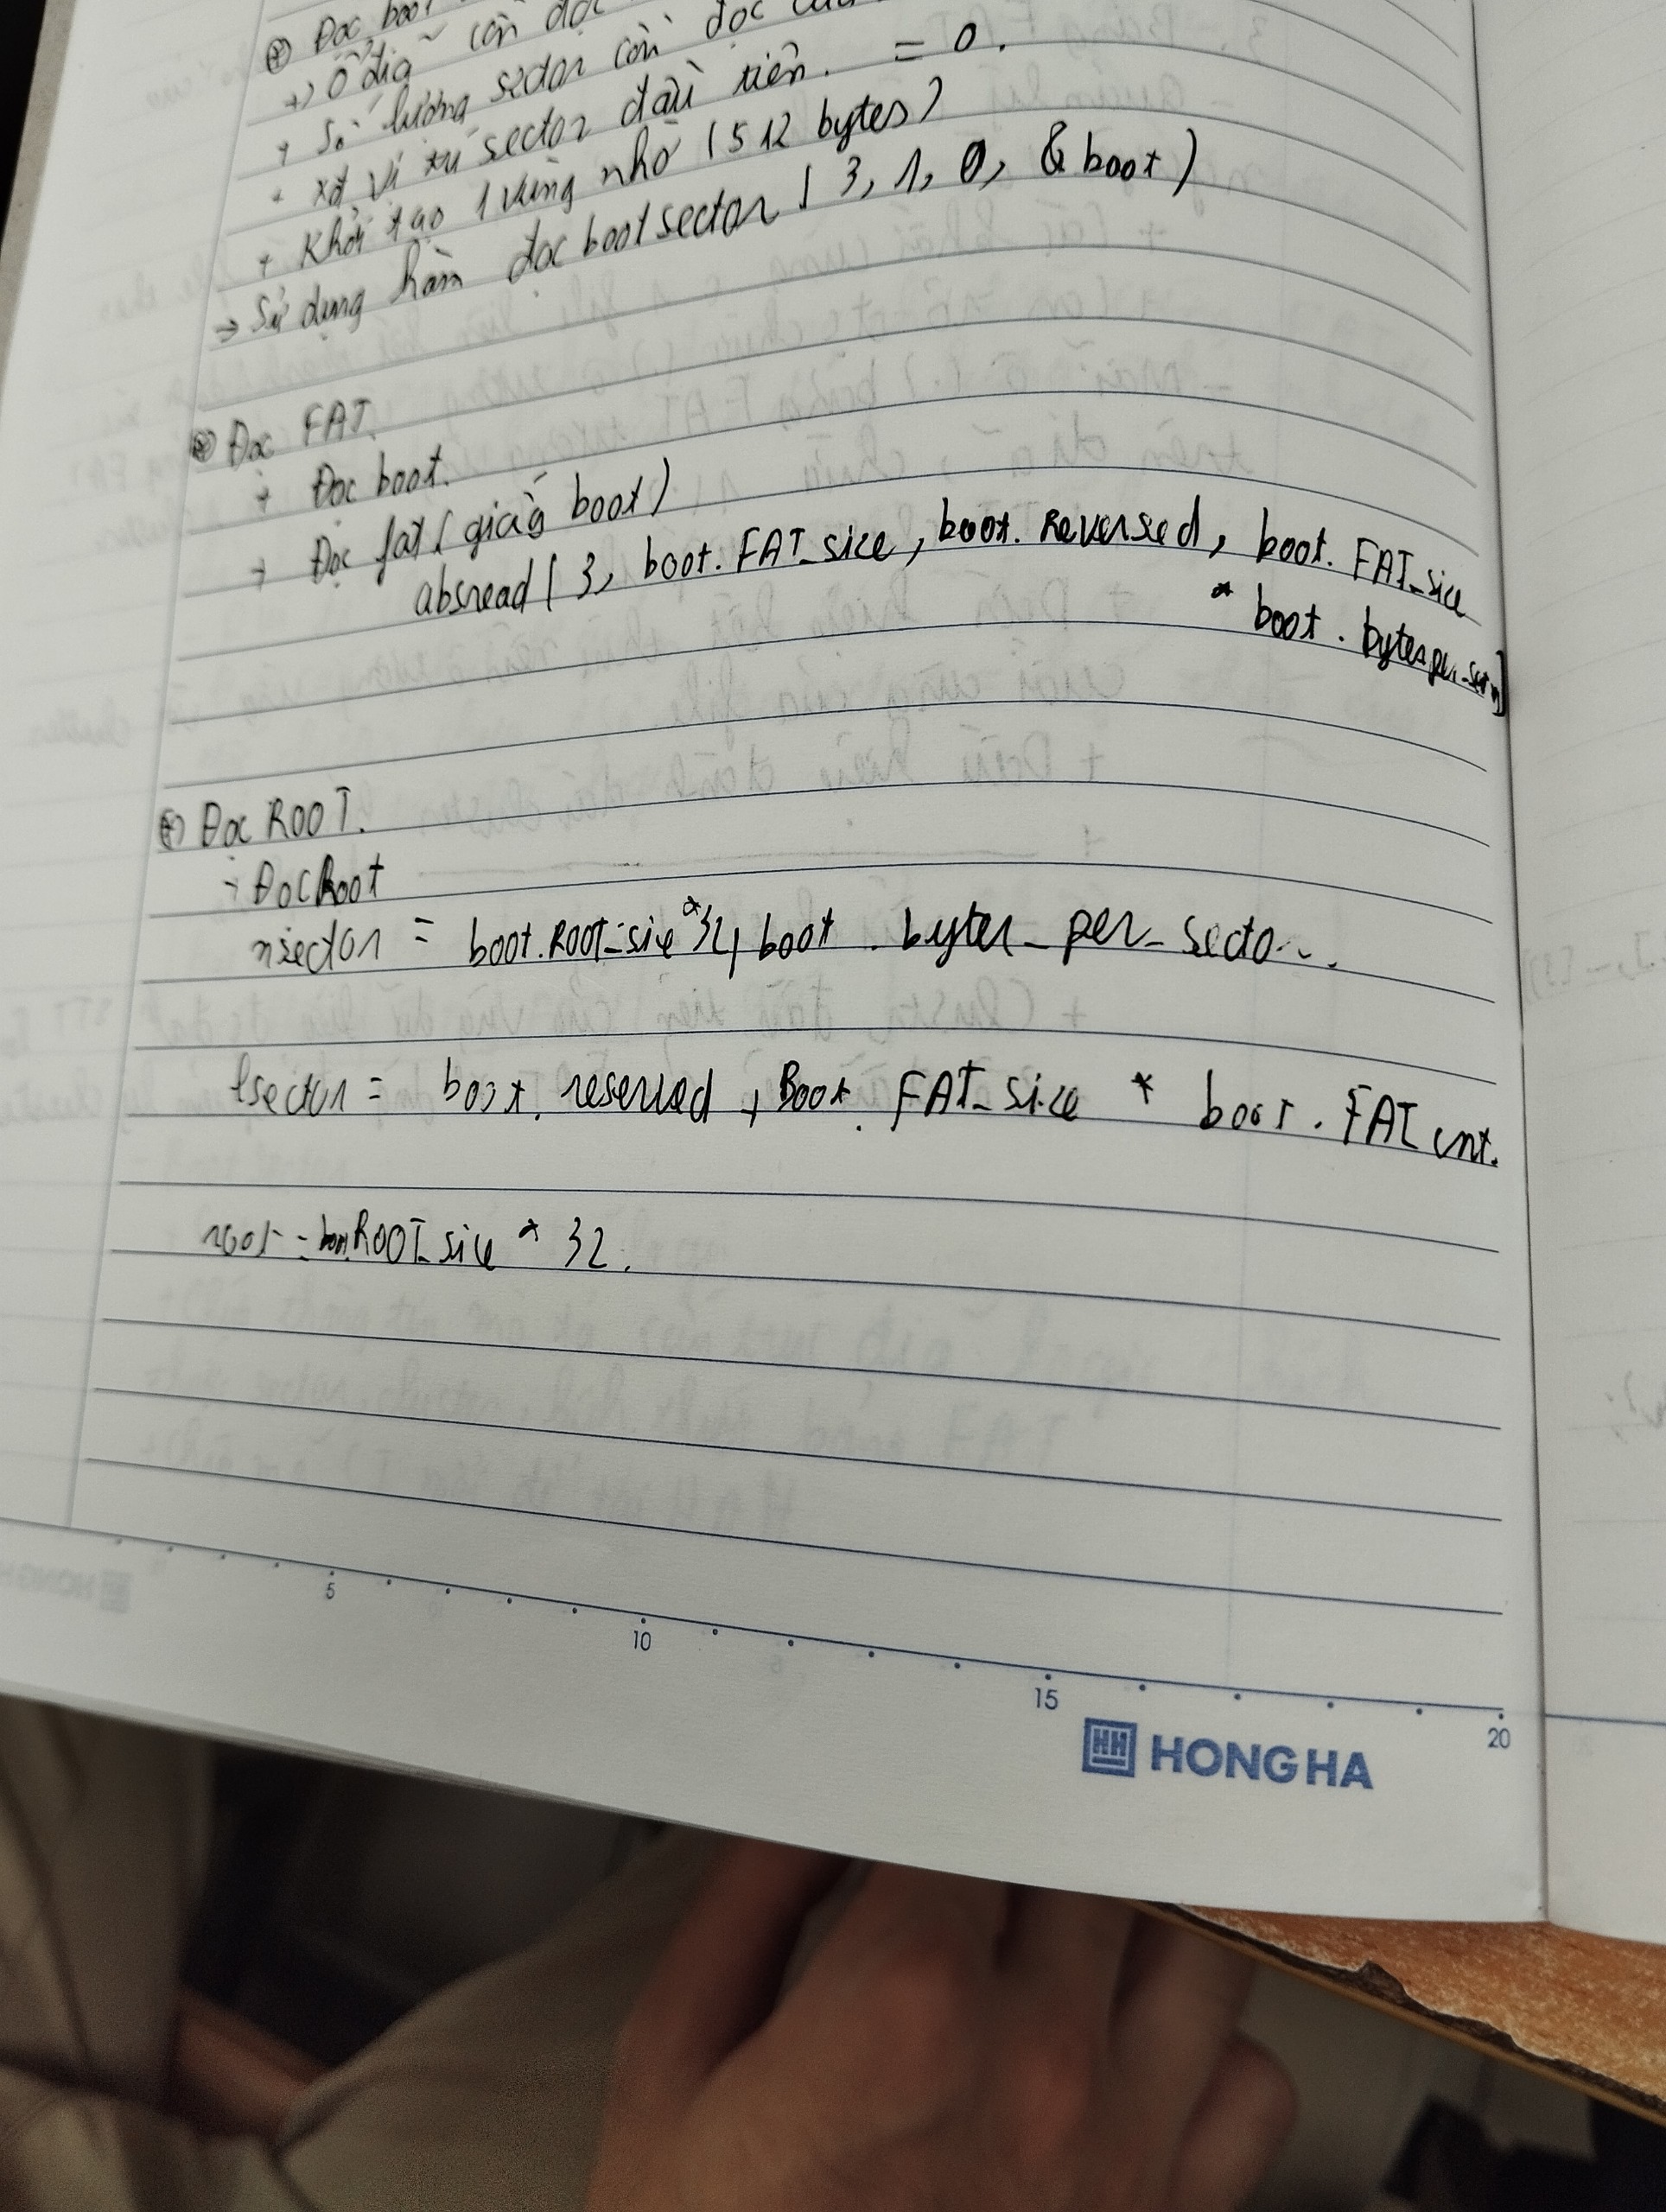 ⊕ Đọc boot
+) Ổ đĩa cần đọc
+ Số lượng sector cần đọc
+ xđ vị trí sector đầu tiên. = 0.
+ Khởi tạo 1 vùng nhớ (512 bytes)
→ Sử dụng hàm đọc bootsector ( 3, 1, 0, & boot )
⊕ Đọc FAT.
+ Đọc boot.
+ Đọc fat ( giống boot)
absread ( 3, boot. FAT_sice, boot. Reversed, boot. FAT_sice
* boot .
⊕ Đọc ROOT.
+ Đọc Root
nsector = boot.ROOT_sice * 32 / boot . bytes_per_secto
fsector = boot. reserved + Boot. FAT_sice * boot. FAT cnt.
root = boot.ROOT_sice * 32.
5
10
15
20
HH HONG HA